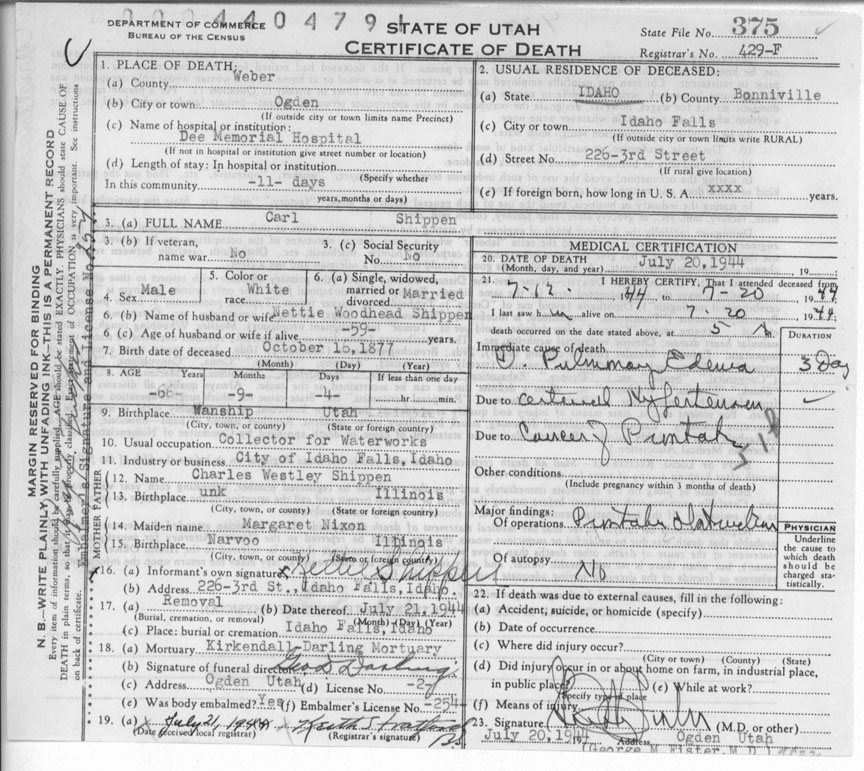 000440479
DEPARTMENT OF COMMERCE
BUREAU OF THE CENSUS
STATE OF UTAH
CERTIFICATE OF DEATH
State File No. 375
Registrar's No. 429-F
MARGIN RESERVED FOR BINDING
N. B.—WRITE PLAINLY WITH UNFADING INK—THIS IS A PERMANENT RECORD
Every item of information should be carefully supplied. AGE should be stated EXACTLY. PHYSICIANS should state CAUSE OF
DEATH in plain terms, so that it may be properly classified. Exact statement of OCCUPATION is very important. See instructions
on back of certificate.
Embalmer's Signature and License No. 254
1. PLACE OF DEATH:
(a) County Weber
(b) City or town Ogden
(If outside city or town limits name Precinct)
(c) Name of hospital or institution:
Dee Memorial Hospital
(If not in hospital or institution give street number or location)
(d) Length of stay: In hospital or institution
(Specify whether
In this community -11- days
years, months or days)
2. USUAL RESIDENCE OF DECEASED:
(a) State IDAHO (b) County Bonniville
(c) City or town Idaho Falls
(If outside city or town limits write RURAL)
(d) Street No. 226-3rd Street
(If rural give location)
(e) If foreign born, how long in U. S. A. xxxx years.
3. (a) FULL NAME Carl Shippen
3. (b) If veteran, name war No
3. (c) Social Security No. No
4. Sex Male
5. Color or race White
6. (a) Single, widowed, married or divorced Married
6. (b) Name of husband or wife Nettie Woodhead Shippen
6. (c) Age of husband or wife if alive -59- years.
7. Birth date of deceased October 16, 1877
(Month) (Day) (Year)
8. AGE Years Months Days If less than one day
-66- -9- -4- hr. min.
9. Birthplace Wanship Utah
(City, town, county) (State or foreign country)
10. Usual occupation Collector for Waterworks
11. Industry or business City of Idaho Falls, Idaho
FATHER
12. Name Charles Westley Shippen
13. Birthplace unk Illinois
(City, town, or county) (State or foreign country)
MOTHER
14. Maiden name Margaret Nixon
15. Birthplace Narvoo Illinois
(City, town, or county) (State or foreign country)
16. (a) Informant's own signature x Nettie Shippen
(b) Address 226-3rd St., Idaho Falls, Idaho.
17. (a) Removal (b) Date thereof July 21, 1944
(Burial, cremation, or removal) (Month) (Day) (Year)
(c) Place: burial or cremation Idaho Falls, Idaho
18. (a) Mortuary Kirkendall-Darling Mortuary
(b) Signature of funeral director Geo D Darling
(c) Address Ogden Utah (d) License No. -27-
(e) Was body embalmed? Yes (f) Embalmer's License No. -254-
19. (a) x July 21, 1944 x Keith S
(Date received local registrar) (Registrar's signature)
MEDICAL CERTIFICATION
20. DATE OF DEATH July 20, 1944
(Month, day, and year) 19
21. I HEREBY CERTIFY, That I attended deceased from
7-12- 1944 to 7-20 1944
I last saw him alive on 7-20 1944
death occurred on the date stated above, at 5 A.
DURATION
Immediate cause of death
Pulmonary Edema 3 Day
Due to Hypertension
Due to Cancer of Prostate
Other conditions
(Include pregnancy within 3 months of death)
Major findings:
Of operations Prostate
Of autopsy No
PHYSICIAN
Underline
the cause to
which death
should be
charged sta-
tistically.
22. If death was due to external causes, fill in the following:
(a) Accident, suicide, or homicide (specify)
(b) Date of occurrence
(c) Where did injury occur?
(City or town) (County) (State)
(d) Did injury occur in or about home on farm, in industrial place,
in public place? (e) While at work?
(Specify type of place
(f) Means of injury
23. Signature (M.D. or other)
July 20, 1944 Address Ogden Utah
(George M. Fister, M.D.)